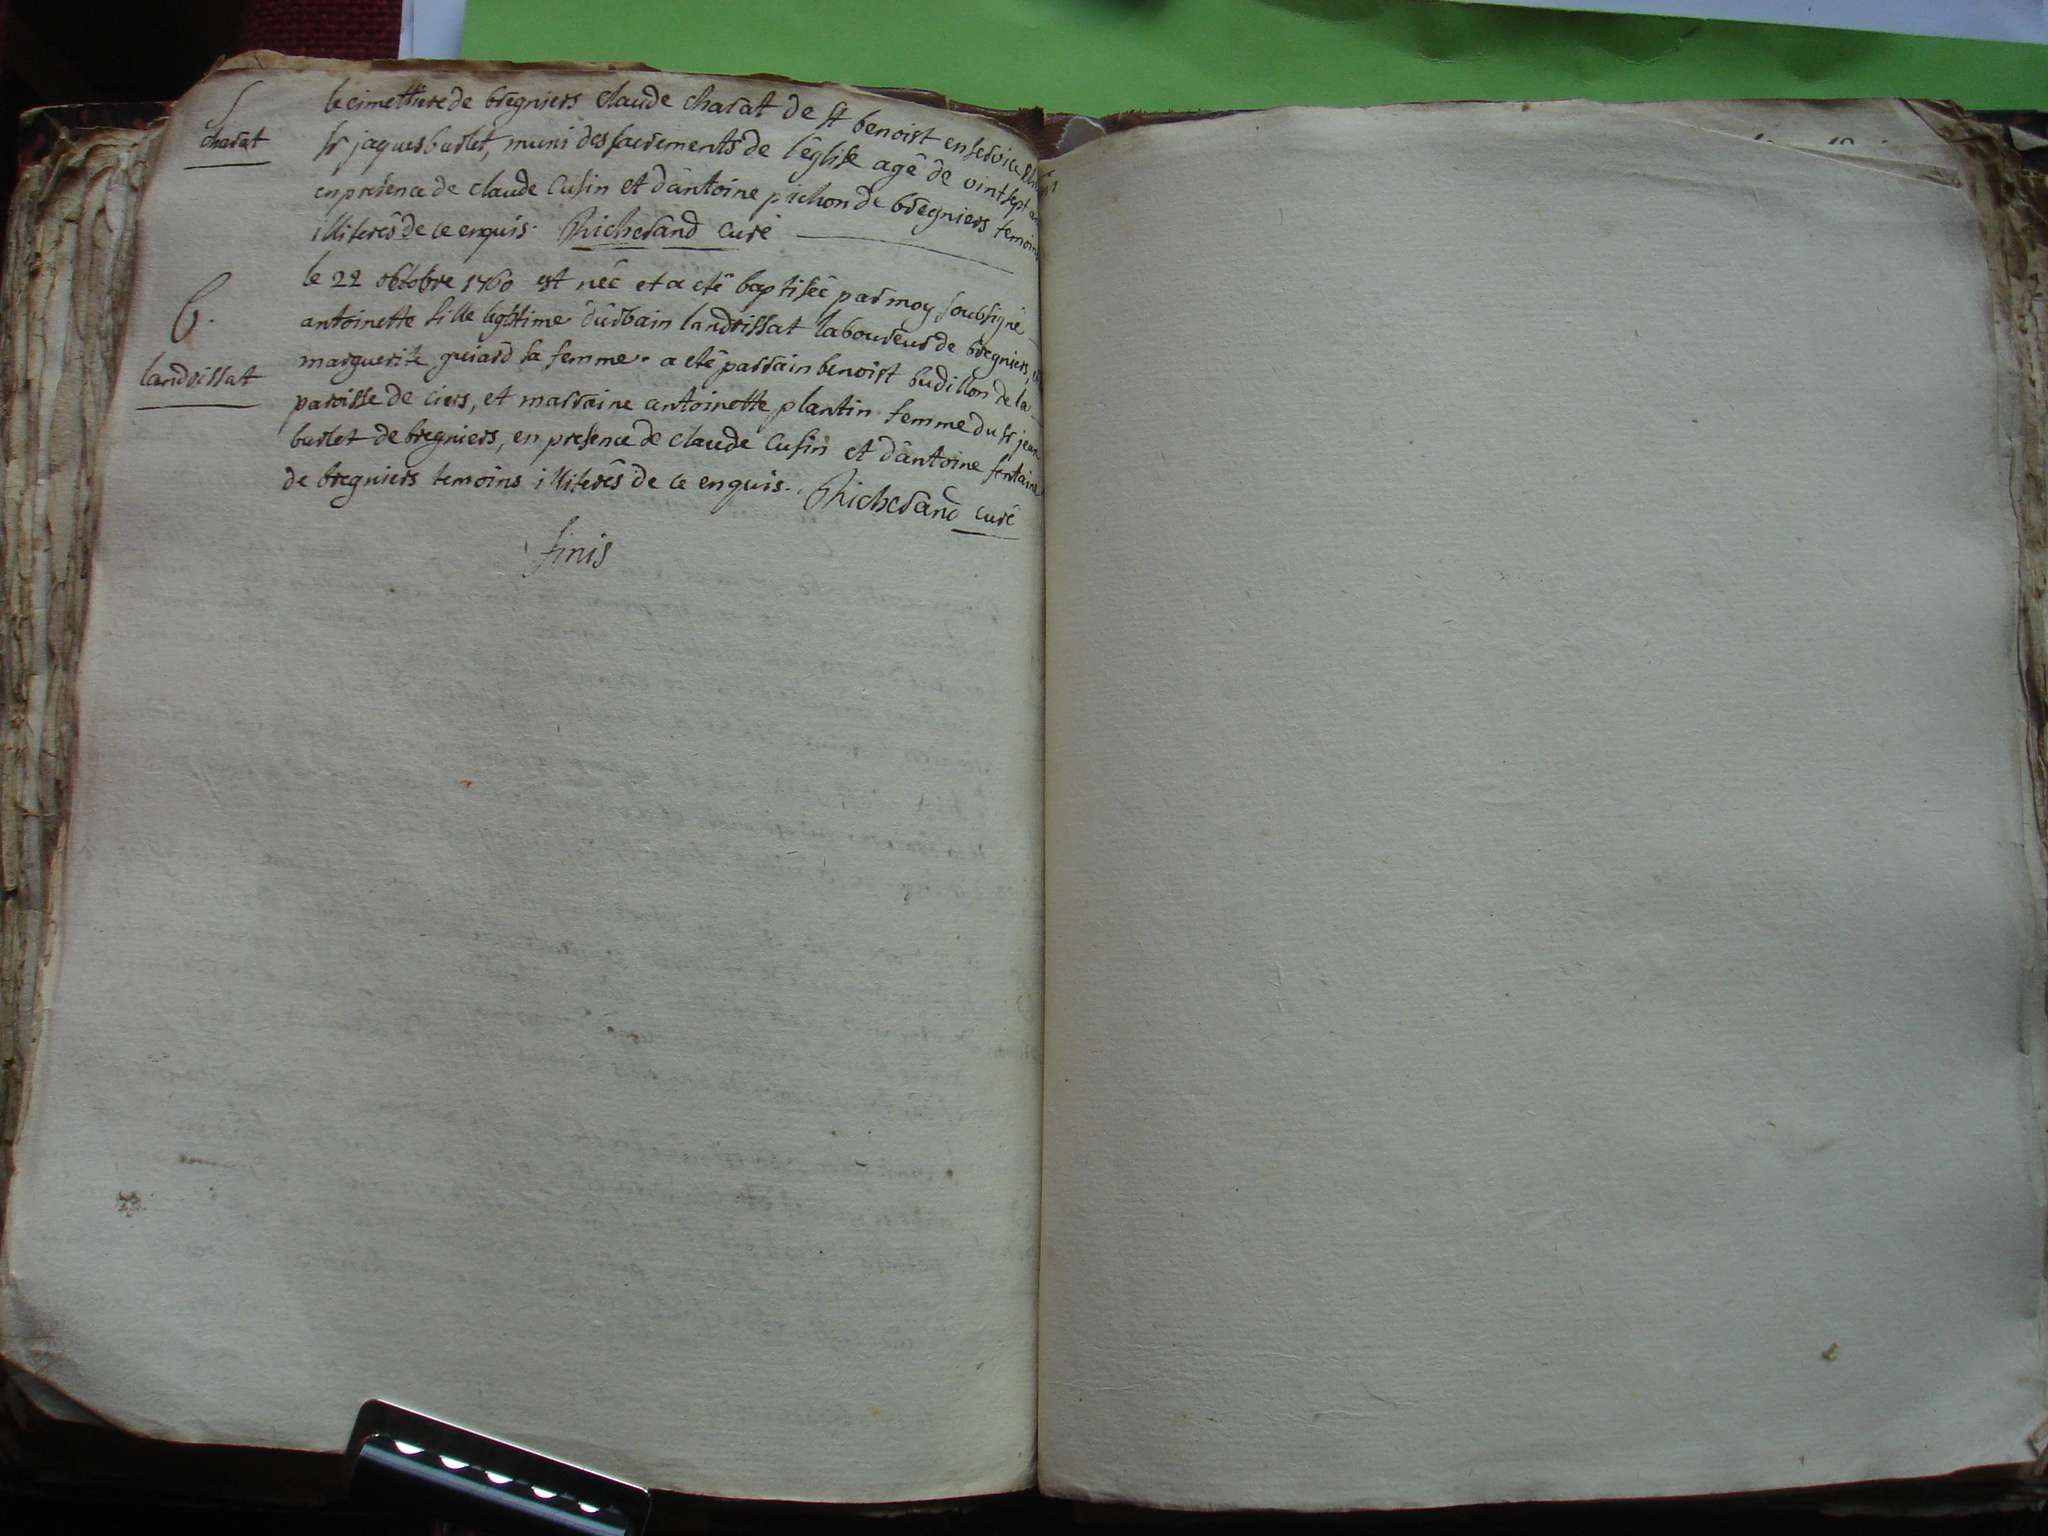 S
charat
le cimettiere de bregniers claude charat de st benoist en service chez
sr jaques burlet, muni des sacrements de l'église agé de vint sept ans
en presence de claude cusin et d'antoine pichon de bregniers temoins
illiterés de ce enquis. Richerand curé
B.
landrissat
le 22 octobre 1760 est néé et a eté baptiséé par moy soubsigné
antoinette fille legitime d'urbain landrissat laboureur de bregniers, et
marguerite guiard sa femme. a eté parrain benoist budillon de la
paroisse de ciers, et marraine antoinette plantin femme du sr jean
burlet de bregniers, en presence de claude cusin et d'antoine fontaine
de bregniers temoins illiterés de ce enquis. Richerand curé
finis